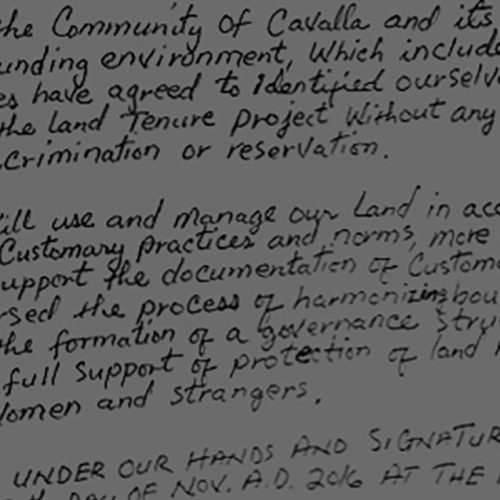 the Community Of Cavalla and its
unding environment, Which include
es have agreed to Identified ourselv
the land Tenure project Without any
crimination or reservation.
ill use and manage our Land in acc
Customary practices and norms, more
upport the documentation of Custom
rsed the process of harmonizing bou
the formation of a governance stru
full support of protection of land
Women and strangers.
UNDER OUR HANDS AND SIGNATUR
DAY OF NOV. A.D. 2016 AT THE